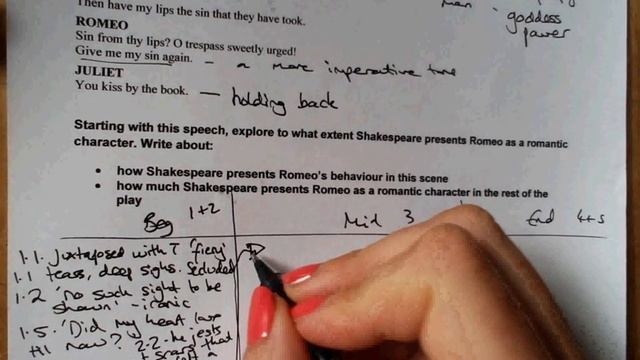 Then have my lips the sin that they have took.
goddess
power
ROMEO
Sin from thy lips? O trespass sweetly urged!
Give me my sin again. - a more imperative tone
JULIET
You kiss by the book. — holding back
Starting with this speech, explore to what extent Shakespeare presents Romeo as a romantic
character. Write about:
• how Shakespeare presents Romeo's behaviour in this scene
• how much Shakespeare presents Romeo as a romantic character in the rest of the
play
Beg 1+2 Mid 3 End 4+5
1.1. juxtaposed with T 'fiery'
1.1 tears, deep sighs. Secluded
1.2 'no such sight to be
shown' - ironic
1.5. 'Did my heart love
till now? 2.2 - he jests
at scars that